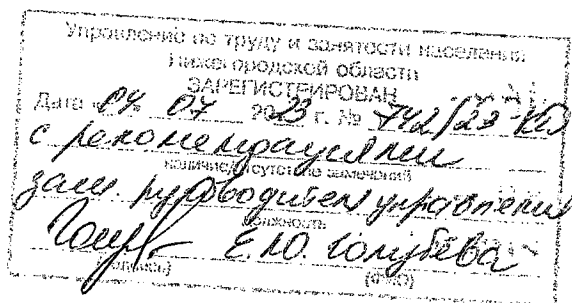 Управление по труду и занятости населения
Нижегородской области
ЗАРЕГИСТРИРОВАН
Дата «04» 07 2023 г. № 742/23-КД
с рекомендациями
наличие/отсутствие замечаний
зам. руководителя управления
должность
Е.Ю. Голубева
(подпись) (ФИО)